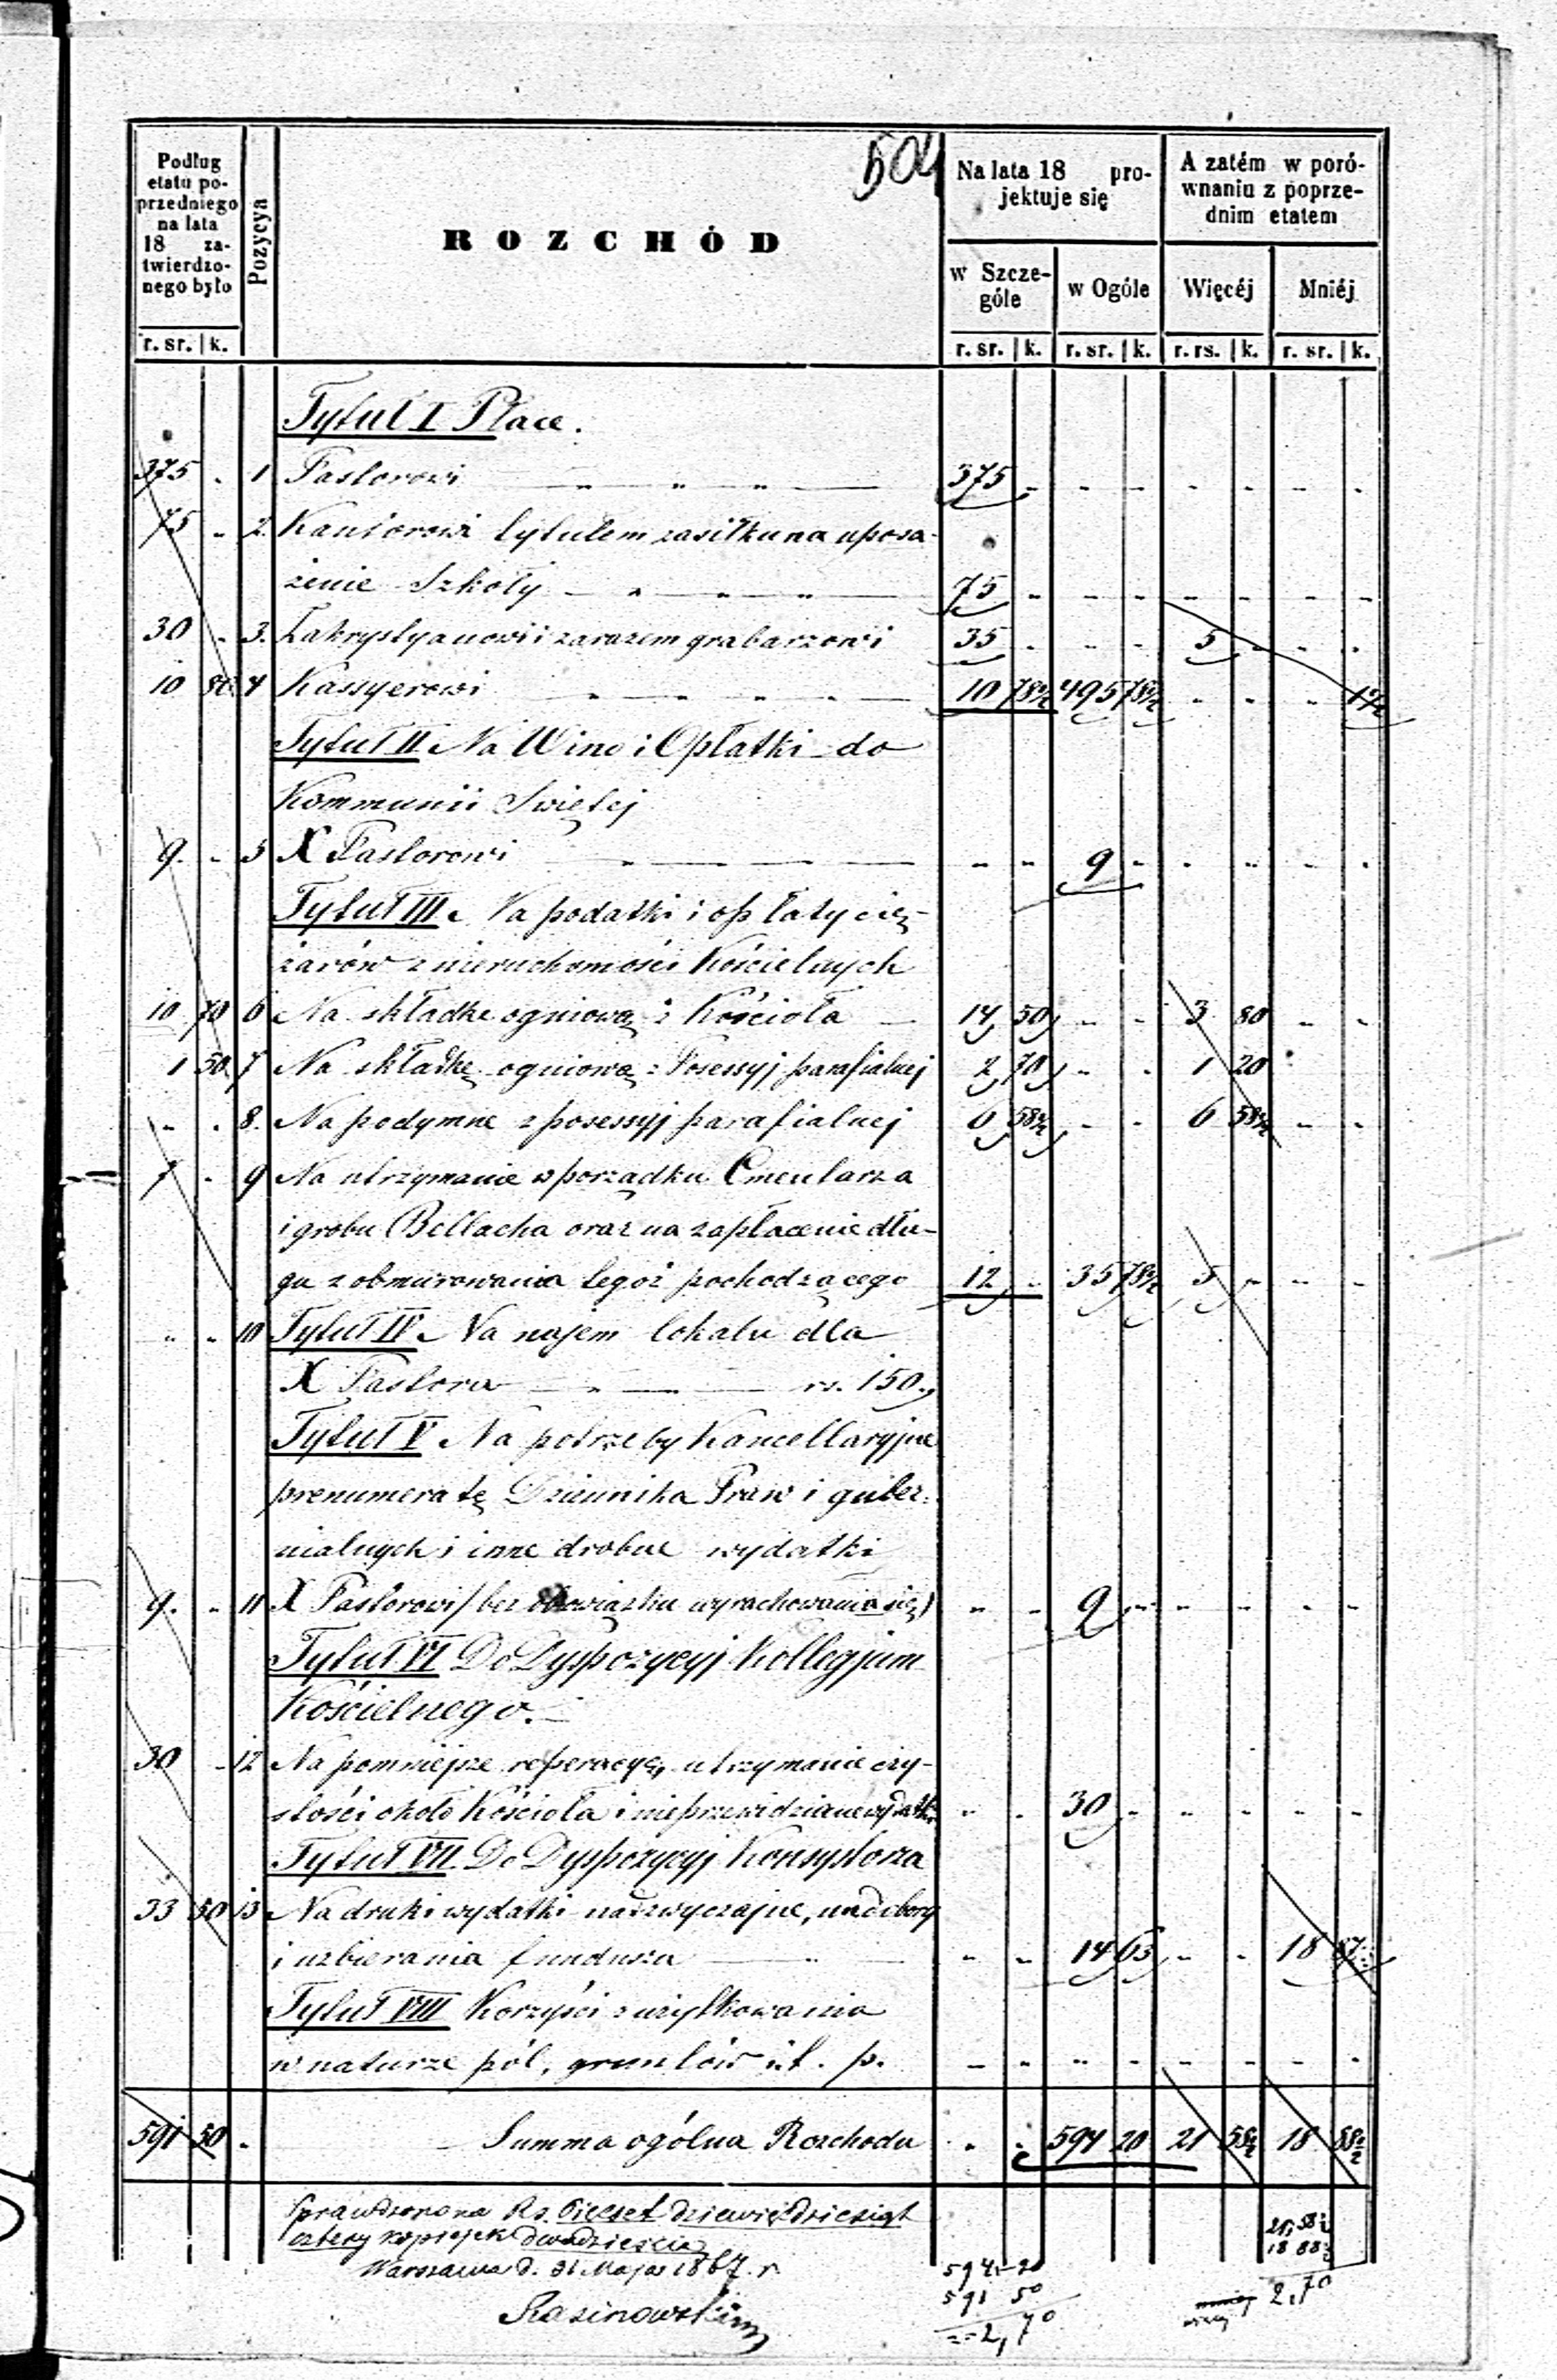 504
Podług etatu poprzedniego na lata 18 zatwierdzonego było
Pozycya
ROZCHÓD
Na lata 18 projektuje się
A zatém w porównaniu z poprzednim etatem
w Szczególe
w Ogóle
Więcéj
Mniéj
r. sr. k.
r. sr. k. r. sr. k. r. rs. k. r. sr. k.
Tytuł I Płace.
375 - 1 Pastorowi 375 - - - - - - -
75 - 2. Kantorowi tytułem zasiłku na uposa-
żenie Szkoły 75 - - - - - - -
30 - 3. Zakrystyanowi i zarazem grabarzowi 35 - - - 5 - - -
10 80 4 Kassyerowi 10 78½ 495 78½ - - - 1½
Tytuł II Na Wino i Opłatki do
Kommunii Swiętej
9. - 5 X Pastorowi - - 9 - - - - -
Tytuł III. Na podatki i opłaty cię-
żarów z nieruchomości Kościelnych
10 70 6 Na składkę ogniową z Kościoła 14 50 - - 3 80 - -
1 50 7 Na składkę ogniową z Posessyj parafialnej 2 70 - - 1 20
- - 8. Na podymne z posessyj parafialnej 6 58½ - - 6 58½ - -
7 - 9 Na utrzymanie w porządku Cmentarza
i grobu Bellacha oraz na zapłacenie dłu-
gu z obmurowania tegoż pochodzącego 12 - 35 78½ 5 - - -
- - 10 Tytuł IV. Na najem lokalu dla
X Pastora rs. 150.
Tytuł V Na potrzeby Kancellaryjne
prenumeratę Dziennika Praw i guber-
nialnych i inne drobne wydatki
9. - 11 X Pastorowi (bez obowiązku wyrachowania się) - - 9 - - - - -
Tytuł VI Do Dyspozycyj Kollegjum
Kościelnego.
30 - 12 Na pomniejsze reperacye, utrzymanie czy-
stości około Kościoła i nieprzewidziane wydatki - - 30 - - - - -
Tytuł VII. Do Dyspozycyj Konsystorza
33 50 13 Na druki wydatki nadzwyczajne, niedobory
i uzbierania funduszu - - 14 63 - - 18 87
Tytuł VIII Korzyści z użytkowania
w naturze pól, gruntów i t. p. - - - - - - - -
591 50 - Summa ogólna Rozchodu - - 594 20 21 58½ 18 88½
Sprawdzono na Rs. Pięćset dziewięćdziesiąt
cztery kopiejek dwadzieścia
Warszawa d. 31 Maja 1867 r.
594-20
591 50
2,70
21,58½
18 88½
więcej 2,70